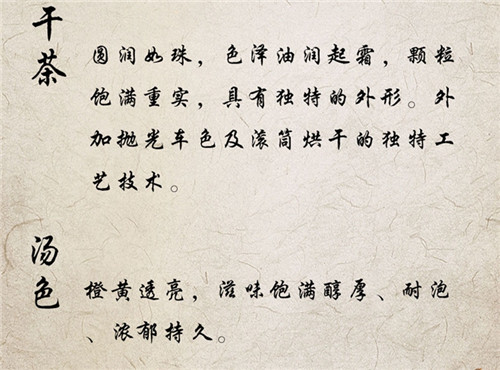 干茶
圆润如珠，色泽油润起霜，颗粒
饱满重实，具有独特的外形。外
加抛光车色及滚筒烘干的独特工
艺技术。
汤色
橙黄透亮，滋味饱满醇厚、耐泡
、浓郁持久。